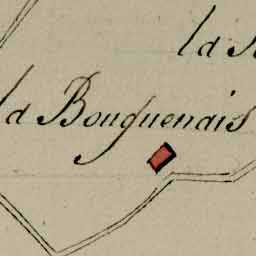 la
la Bouguenais